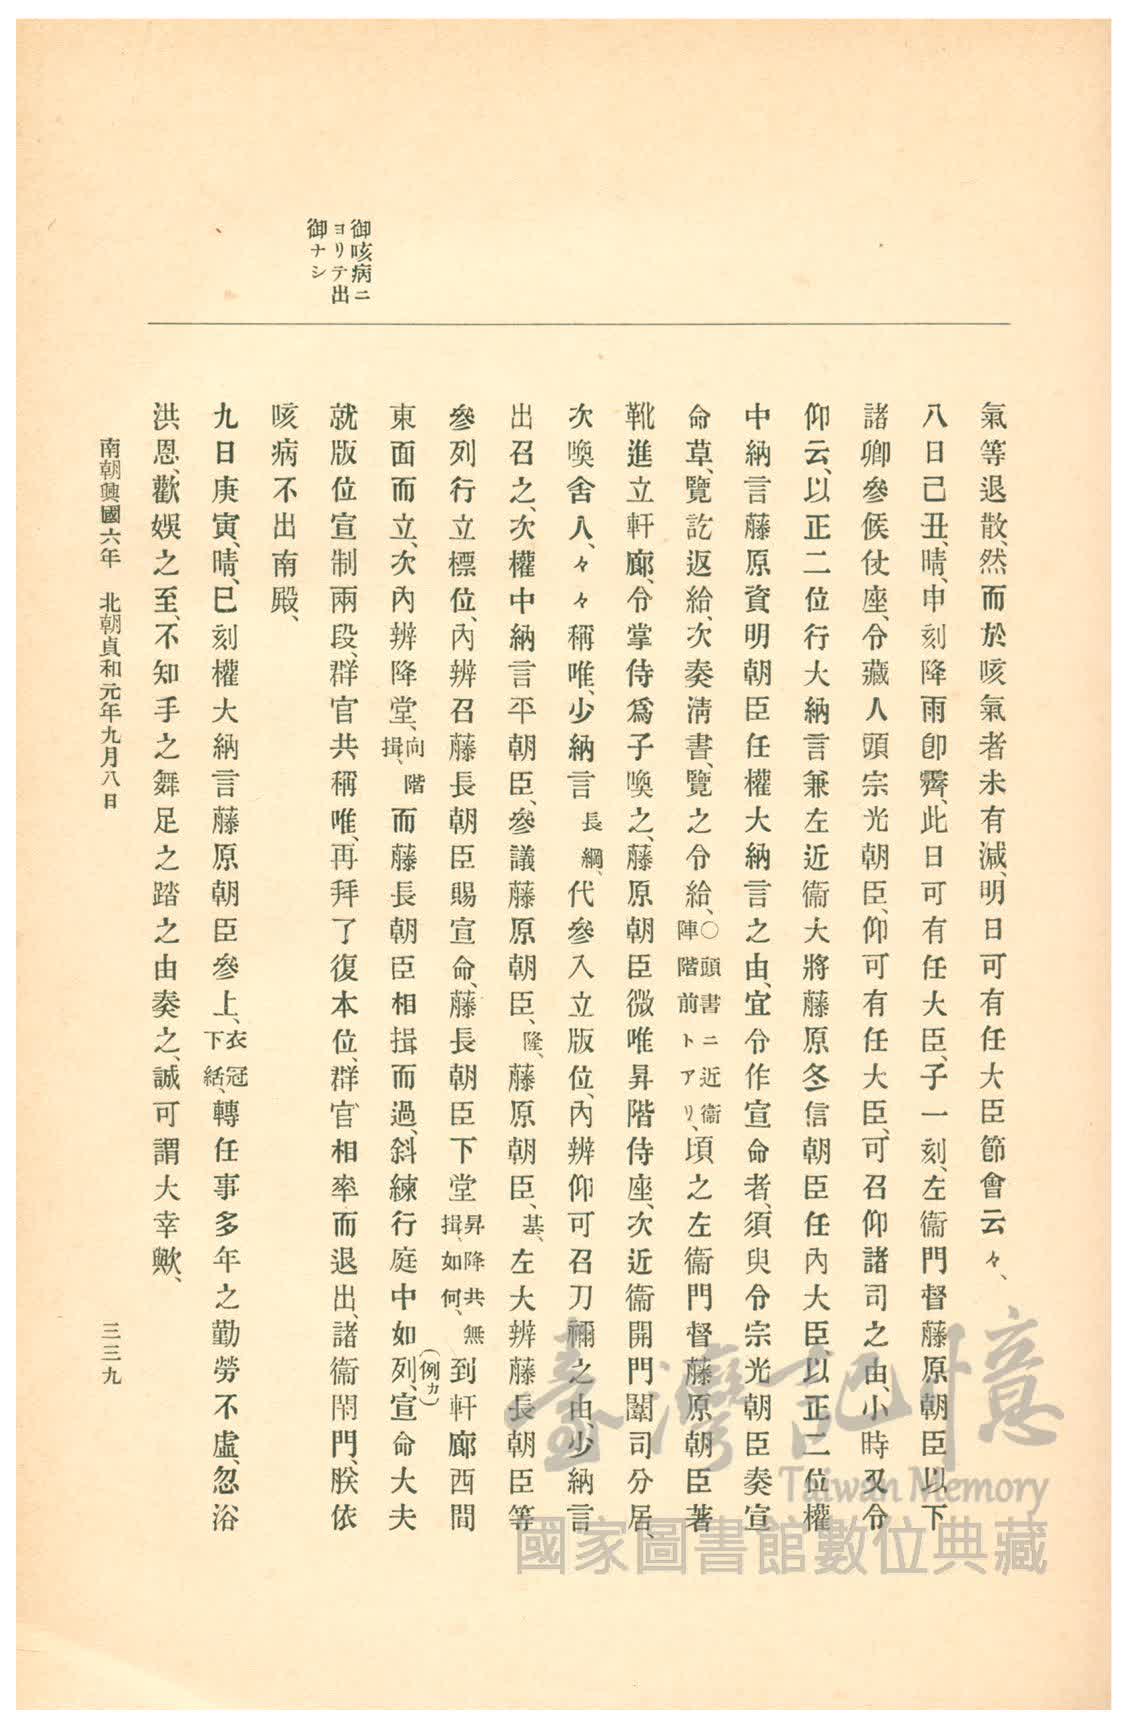 御咳病ニ
ヨリテ出
御ナシ
氣等退散、然而於咳氣者未有減、明日可有任大臣節會云々、
八日己丑、晴、申刻降雨卽霽、此日可有任大臣、子一刻、左衞門督藤原朝臣以下
諸卿參候仗座、令藏人頭宗光朝臣、仰可有任大臣、可召仰諸司之由、小時又令
仰云、以正二位行大納言兼左近衞大將藤原冬信朝臣任內大臣以正二位權
中納言藤原資明朝臣任權大納言之由、宜令作宣命者、須臾令宗光朝臣奏宣
命草、覽訖返給、次奏淸書、覽之令給、〇頭書ニ近衞陣階前トアリ、頃之左衞門督藤原朝臣著
靴進立軒廊、令掌侍爲子喚之、藤原朝臣微唯昇階侍座、次近衞開門闈司分居、
次喚舍人、々々稱唯、少納言長綱、代參入立版位、內辨仰可召刀禰之由、少納言
出召之、次權中納言平朝臣、參議藤原朝臣、隆、藤原朝臣、基、左大辨藤長朝臣等
參列行立標位、內辨召藤長朝臣賜宣命、藤長朝臣下堂昇降共無揖、如何、到軒廊西間
東面而立、次內辨降堂、向階揖、而藤長朝臣相揖而過、斜練行庭中如列、(例カ)宣命大夫
就版位宣制兩段、群官共稱唯、再拜了復本位、群官相率而退出、諸衞閇門、朕依
咳病不出南殿、
九日庚寅、晴、巳刻權大納言藤原朝臣參上、衣冠下結、轉任事多年之勤勞不虛、忽浴
洪恩、歡娛之至、不知手之舞足之踏之由奏之、誠可謂大幸歟、
南朝興國六年　北朝貞和元年九月八日
三三九
臺灣記憶
Taiwan Memory
國家圖書館數位典藏